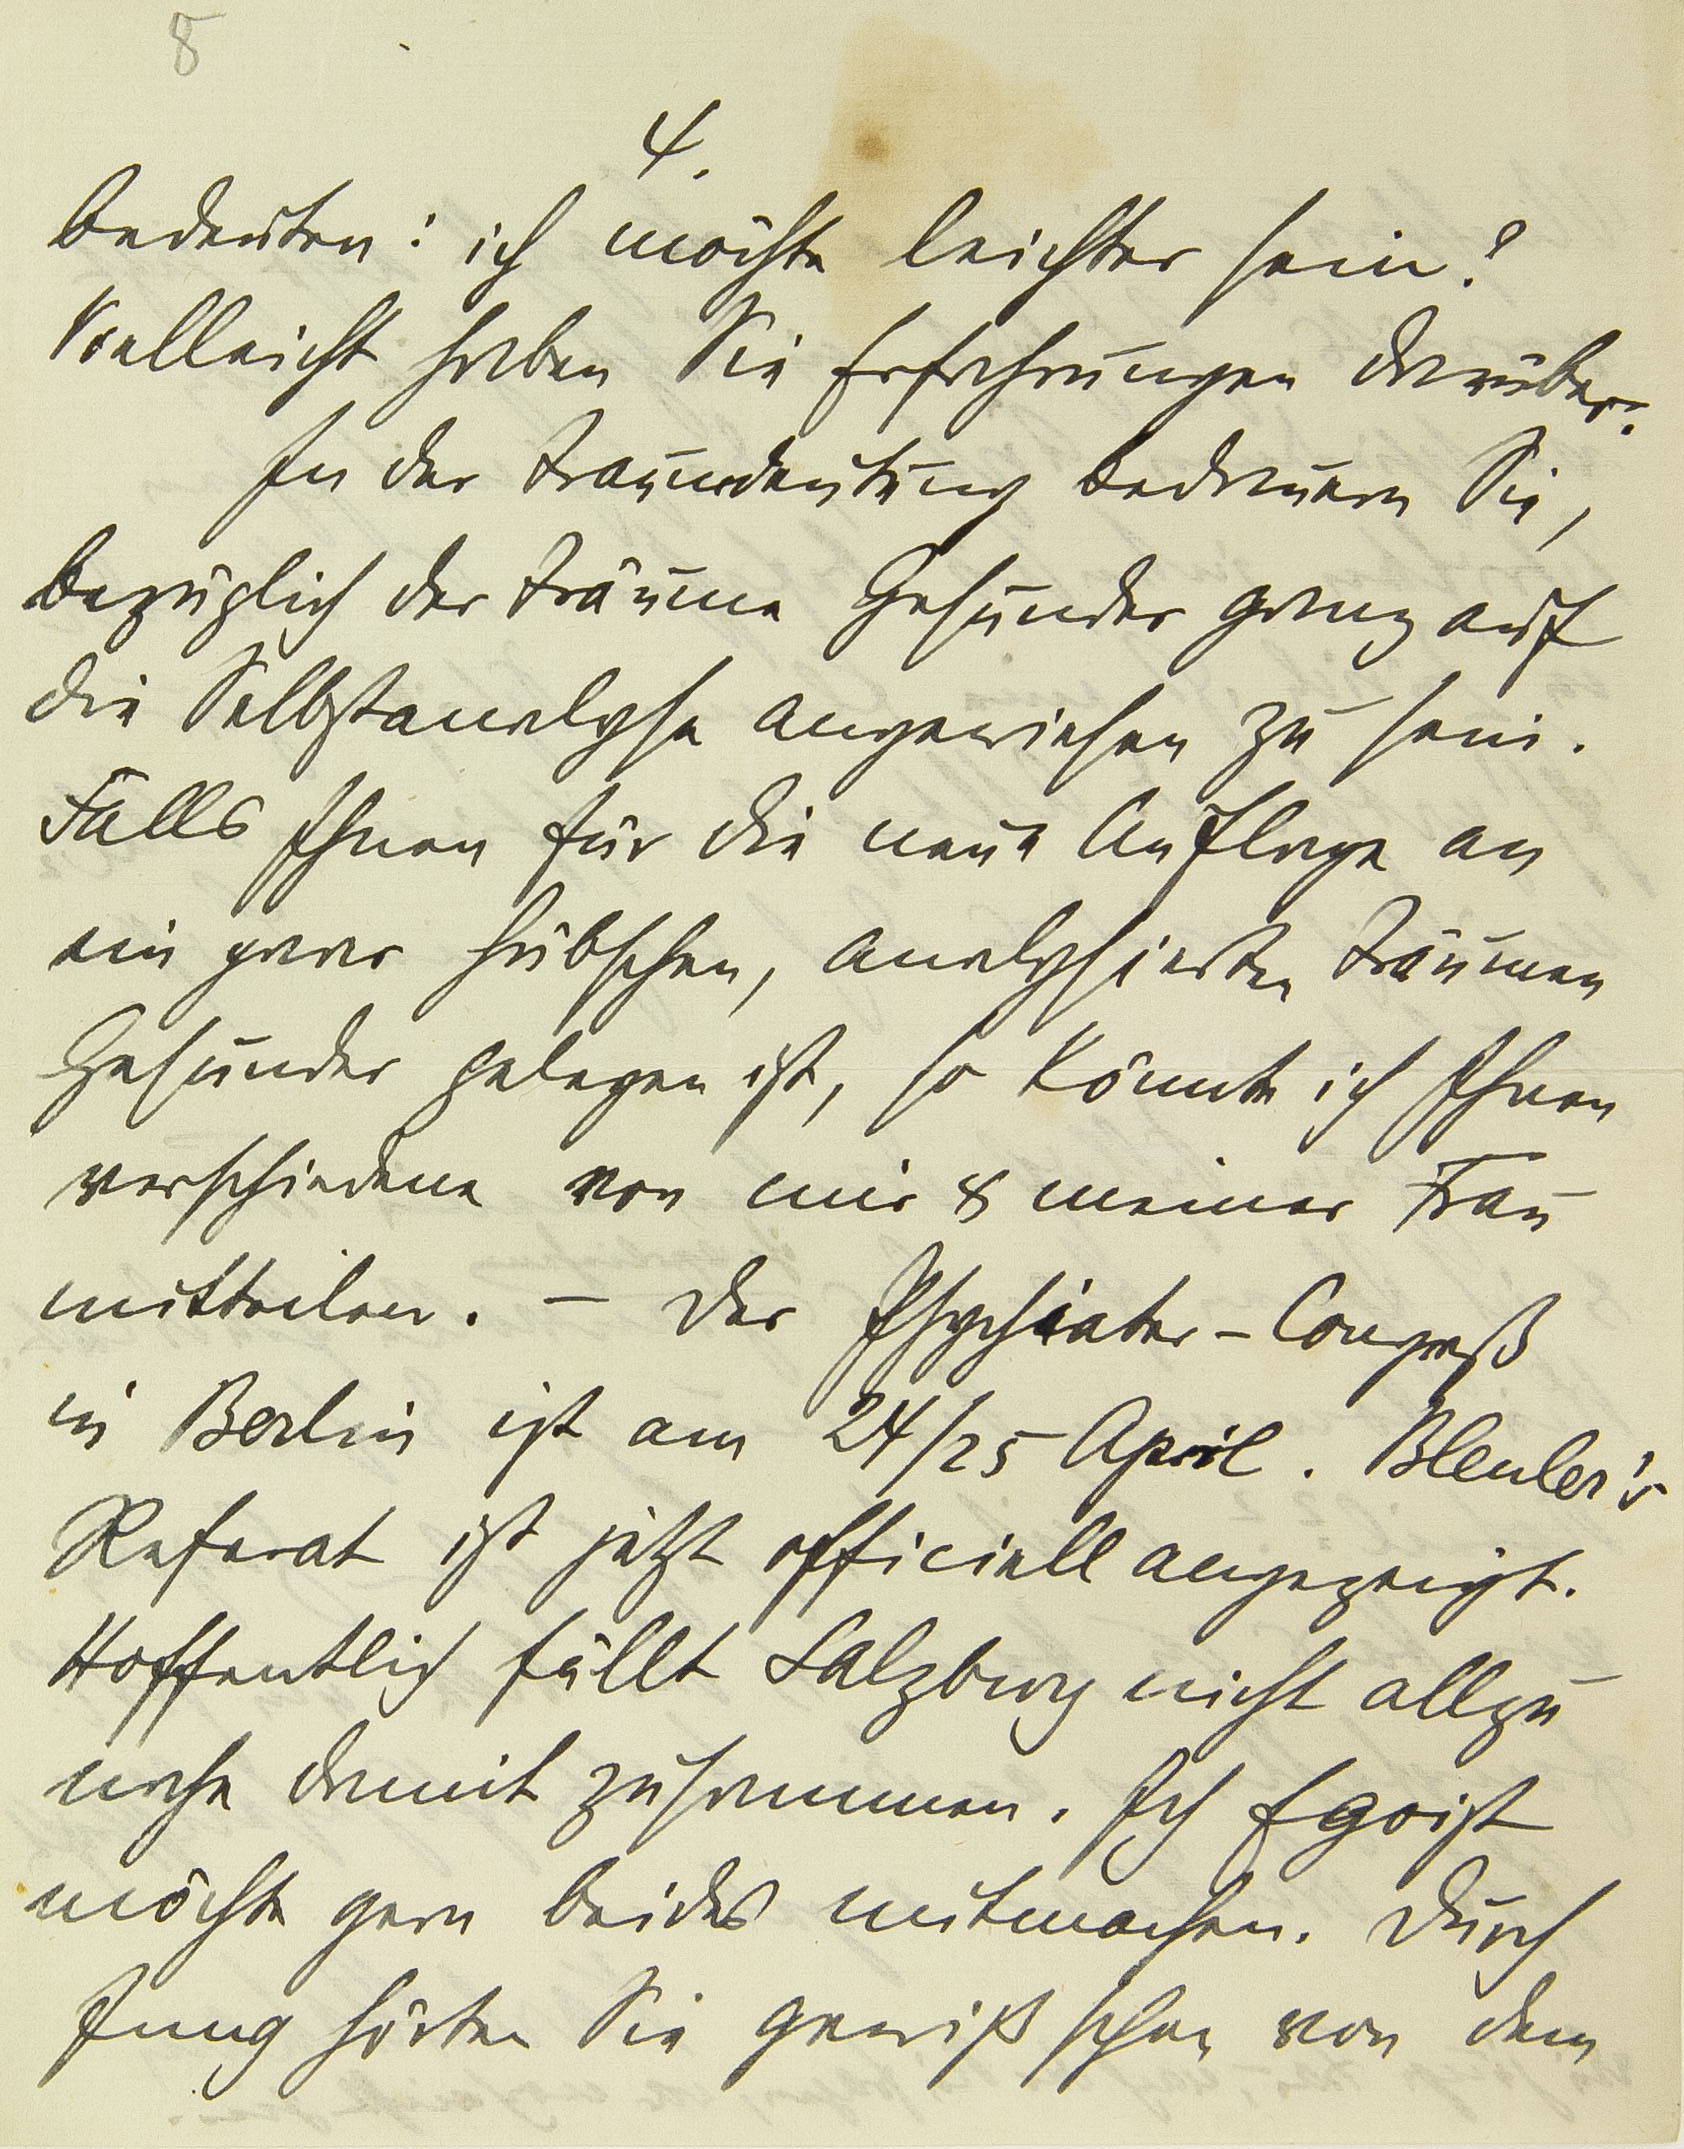 8
4.
bedeuten: ich möchte leichter sein?
Vielleicht haben Sie Erfahrungen darüber.
In der Traumdeutung bedauern Sie,
bezüglich der Träume Gesunder ganz auf
die Selbstanalyse angewiesen zu sein.
Falls Ihnen für die neue Auflage an
ein paar hübschen, analysierten Träumen
Gesunder gelegen ist, so könnte ich Ihnen
verschiedene von mir & meiner Frau
mitteilen. – Der Psychiater-Congreß
in Berlin ist am 24/25 April. Bleuler's
Referat ist jetzt officiell angezeigt.
Hoffentlich fällt Salzburg nicht allzu
nahe damit zusammen. Ich Egoist
möchte gern beides mitmachen. Durch
Jung hörten Sie gewiß schon von dem